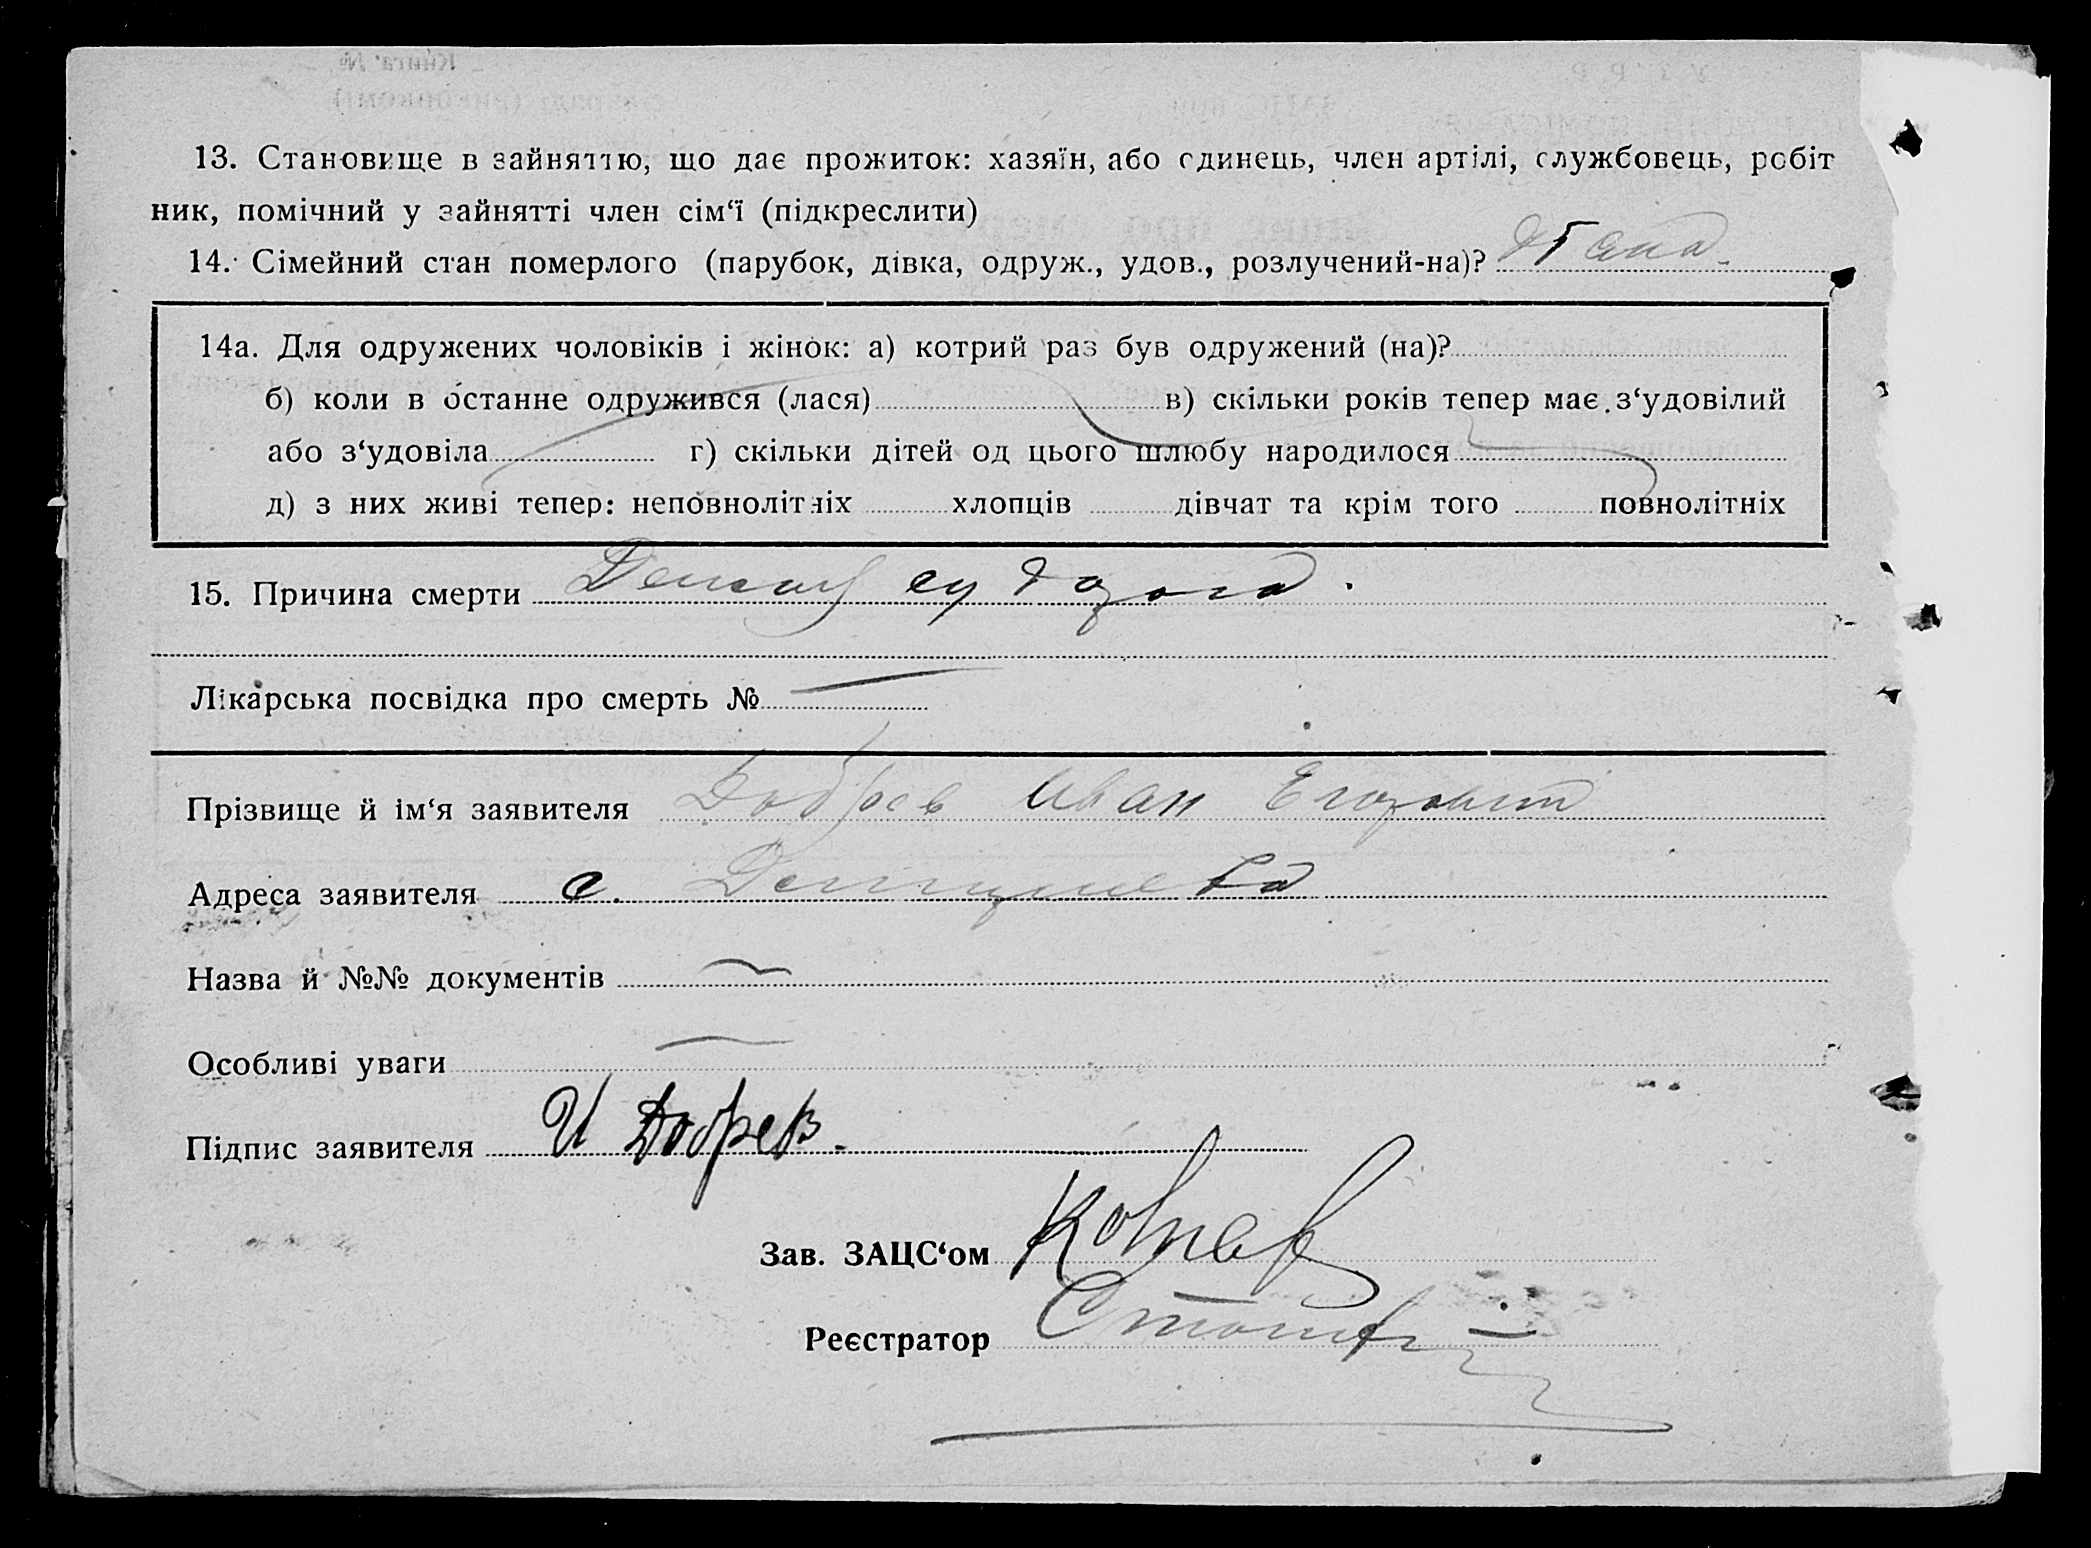 13. Становище в зайняттю, що дає прожиток: хазяїн, або єдинець, член артілі, службовець, робіт
ник, помічний у зайнятті член сім‘ї (підкреслити)
14. Сімейний стан померлого (парубок, дівка, одруж., удов., розлучений-на)?
14а. Для одружених чоловіків і жінок: а) котрий раз був одружений (на)?
б) коли в останне одружився (лася) в) скільки років тепер має з‘удовілий
або з‘удовіла г) скільки дітей од цього шлюбу народилося
д) з них живі тепер: неповнолітніх хлопців дівчат та крім того повнолітніх
15. Причина смерти
Лікарська посвідка про смерть №
Прізвище й ім‘я заявителя Добрев Иван Егорович
Адреса заявителя с.
Назва й №№ документів
Особливі уваги
Підпис заявителя И Добрев.
Зав. ЗАЦС‘ом
Реєстратор